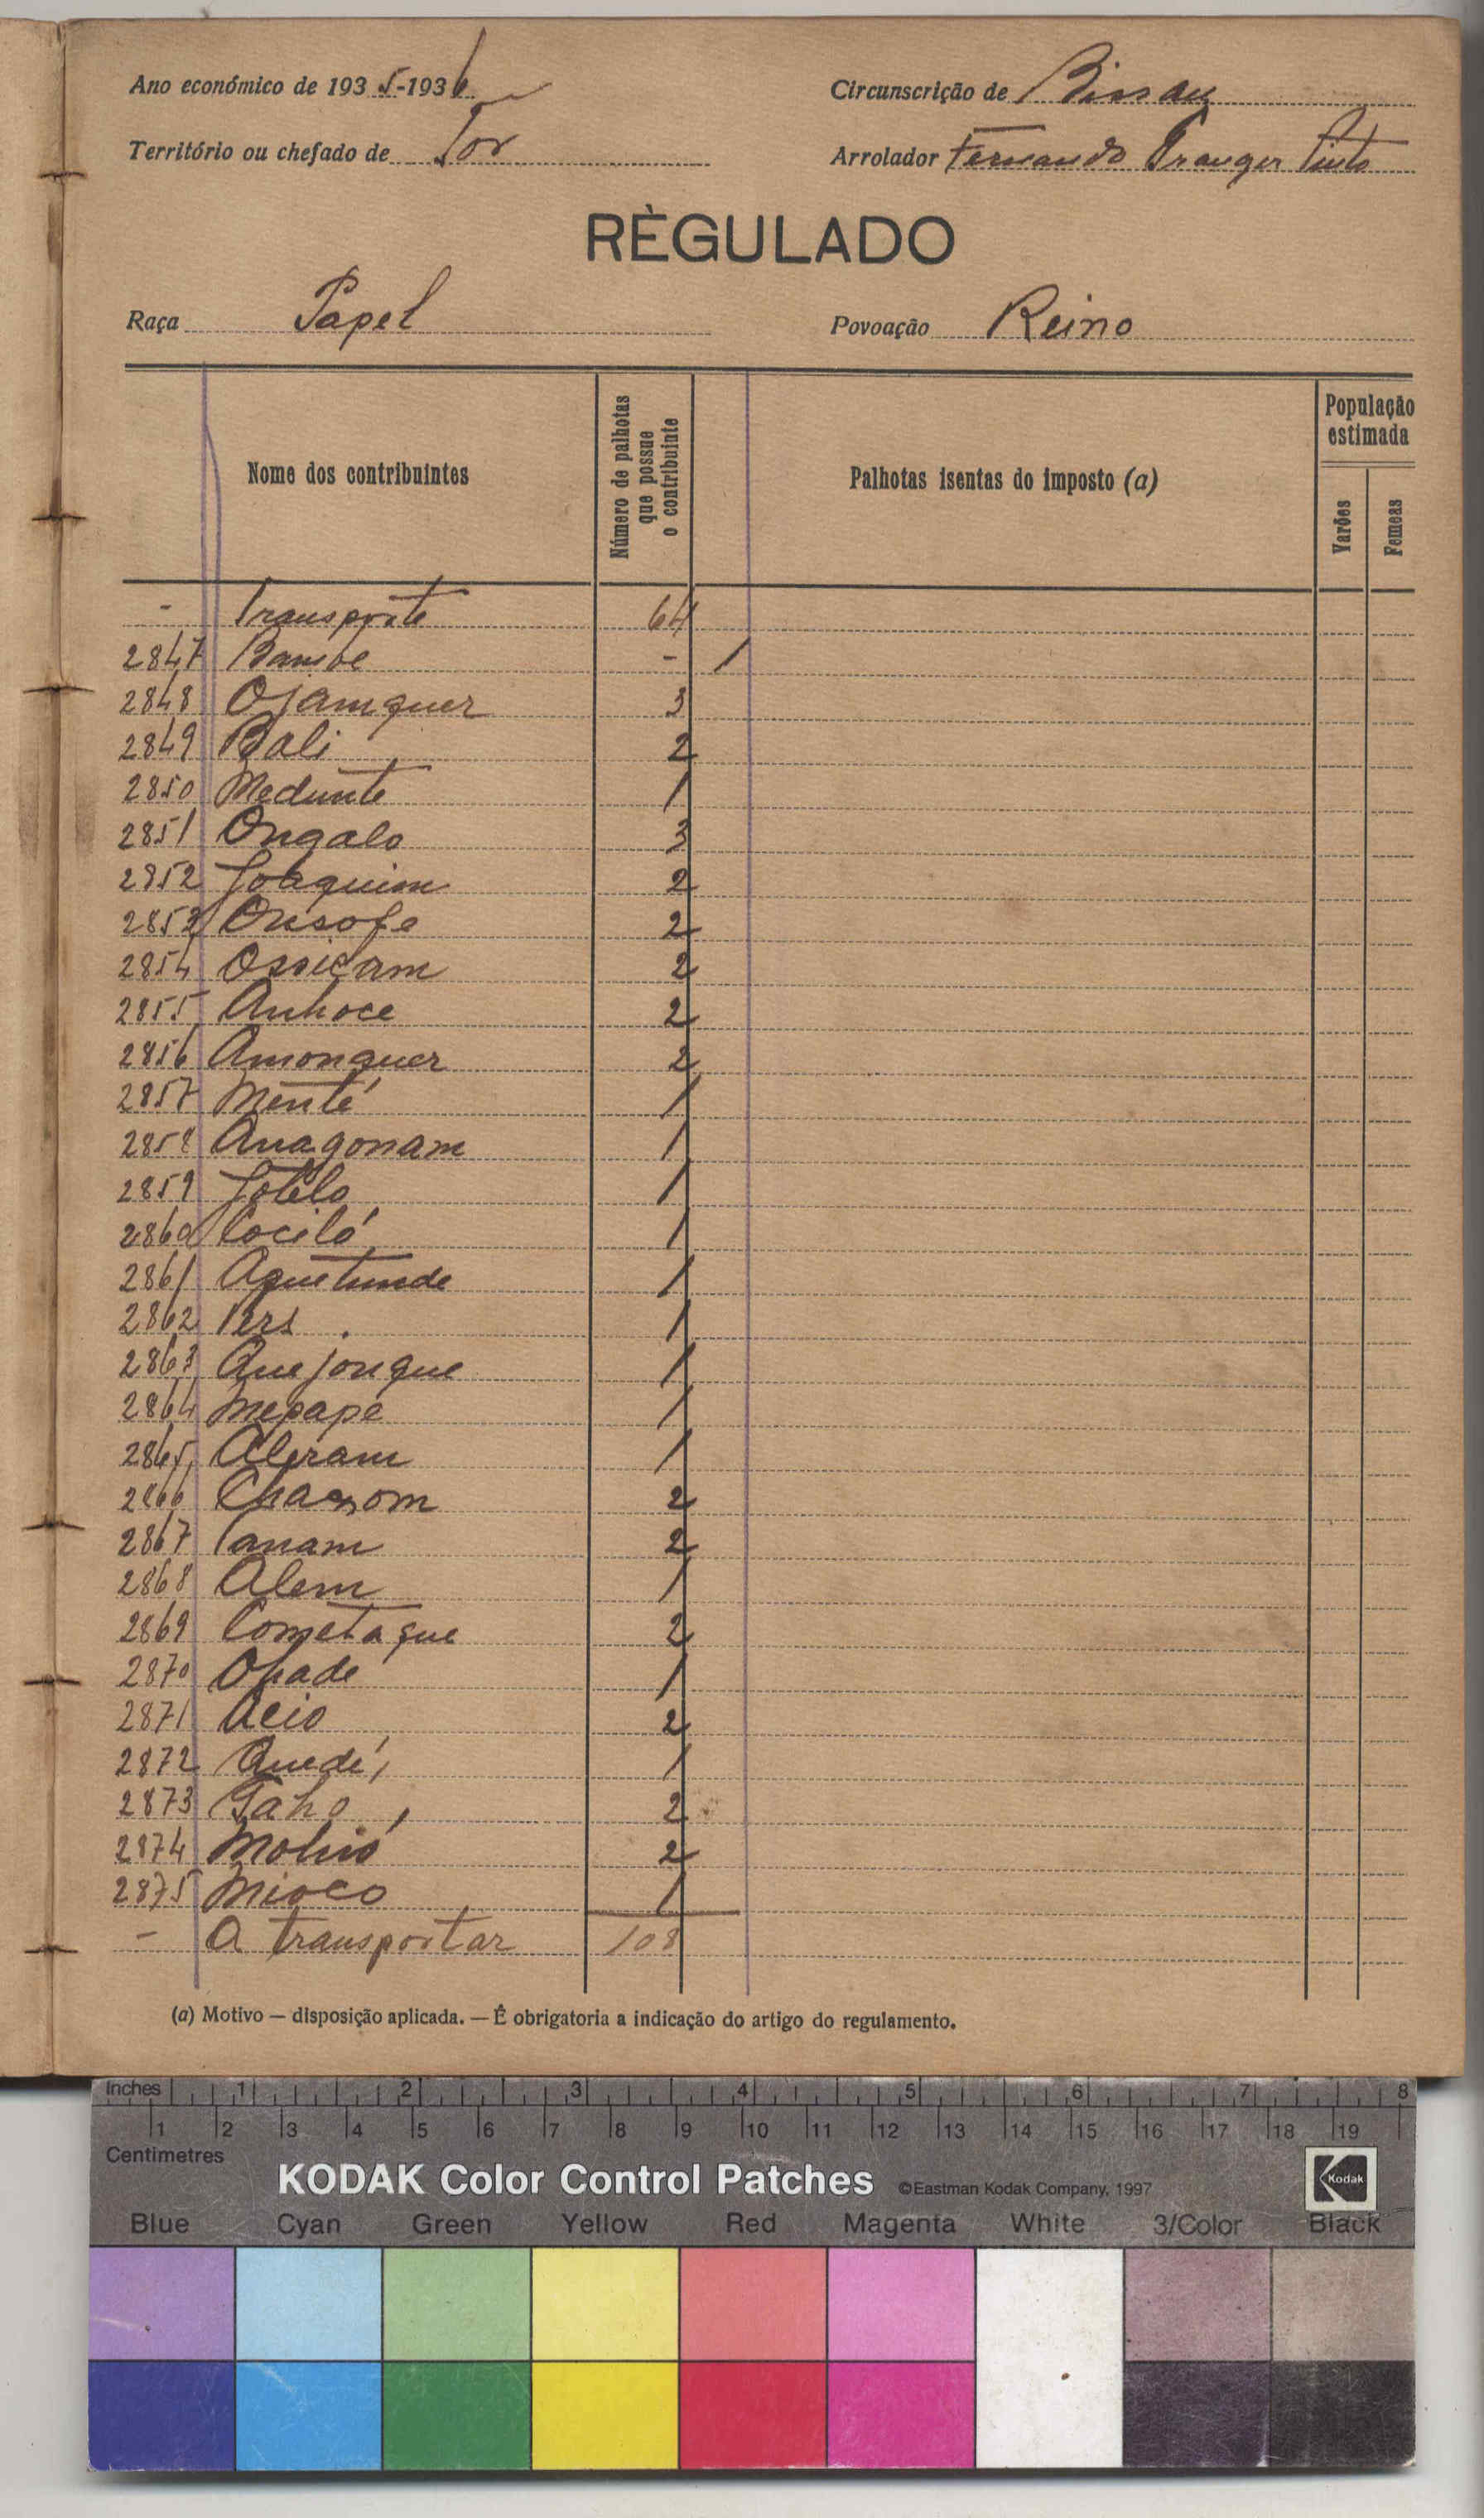 Ano económico de 1935-1936
Circunscrição de Bissau
Território ou chefado de Tor
Arrolador Fernando Pinto
RÈGULADO
Raça Papel
Povoação Reino
Nome dos contribuintes
Número de palhotas que possue o contribuinte
Palhotas isentas do imposto (a)
População estimada
Varões
Femeas
- Transporte 64
2847 Bambe - 1
2848 Ojamquer 3
2849 Bali 2
2850 Medunte 1
2851 Ongalo 3
2852 Joaquim 2
2853 Onsofe 2
2854 Ossicam 2
2855 Anhoce 2
2856 Amonquer 2
2857 Menté 1
2858 Anagonam 1
2859 Jotélo 1
2860 Cociló 1
2861 Aguetunde 1
2862 1
2863 Quejonque 1
2864 Mepapé 1
2865 1
2866 2
2867 Canam 2
2868 Alem 1
2869 Cometaque 2
2870 Opade 1
2871 Acio 2
2872 Quedé 1
2873 2
2874 2
2875 Mioco 1
- A transportar 108
(a) Motivo — disposição aplicada. — É obrigatoria a indicação do artigo do regulamento.
Inches 1 2 3 4 5 6 7 8
1 2 3 4 5 6 7 8 9 10 11 12 13 14 15 16 17 18 19
Centimetres
KODAK Color Control Patches ©Eastman Kodak Company, 1997 Kodak
Blue Cyan Green Yellow Red Magenta White 3/Color Black